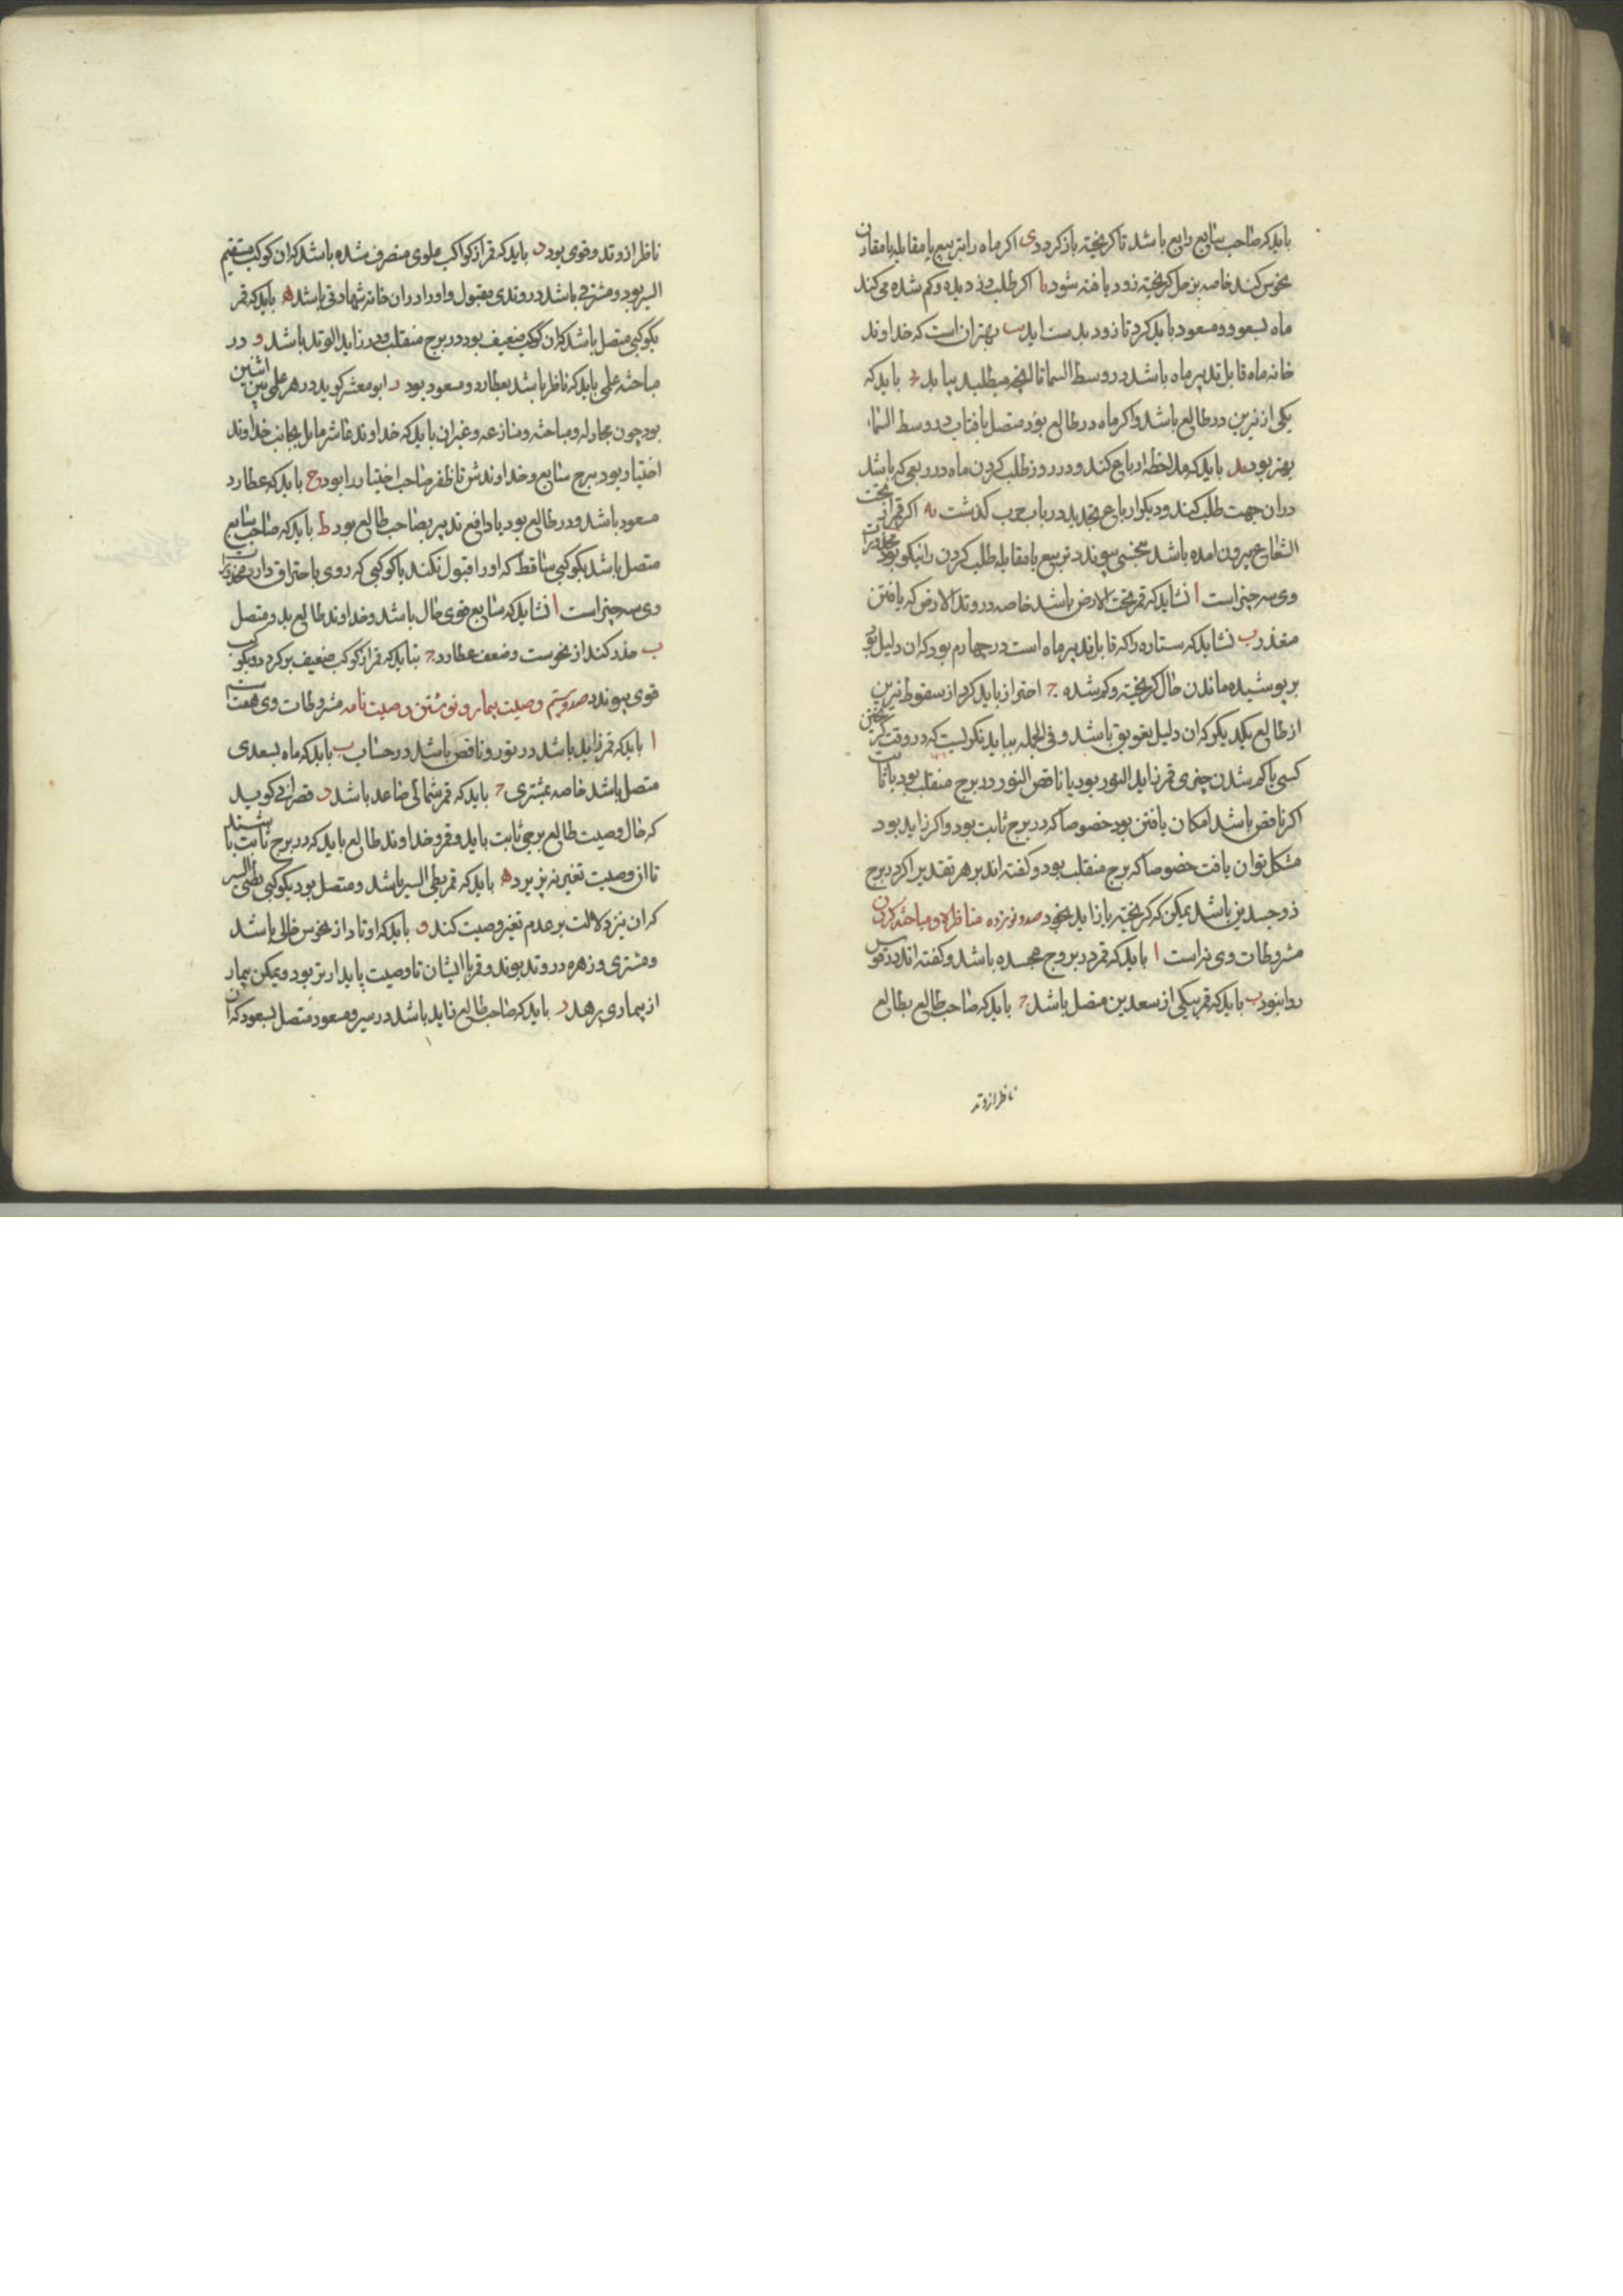 باید که صاحب سابع راجع باشد تا کریخته باز کردد ی اکر ماه را بتربیع یا مقابله یا مقارن
نحوس کنند خاصه بزحل کریخته زود یافته شود یا اکر طلب دزدیده و کم شده می کند
ماه بسعود و مسعود باید کرد تا زود بدست اید یب بهتر ان است که خداوند
خانه ماه قابل تدبیر ماه باشد در وسط السما تا انچه میطلبد بیابد یج باید که
یکی از نیرین در طالع باشد و اکر ماه در طالع بود متصل بافتاب در وسط السما
بهتر بود ید باید که ملاحظه ارباع کند و در روز طلب کردن ماه در ربعی که باشد
دران جهت طلب کند و دیکر ارباع بحد بد در باب ب کذشت یه اکر قمر از تحت
الشعاع بیرون امده باشد بنحسی پیوندد بتربیع یا مقابله طلب کردن را نیکو بود محذورات
وی سه چیز است ا نشاید که قمر تحت الارض باشد خاصه در وتد الارض که یافتن
متعذر ب نشاید که ستاره را که قابل تدبیر ماه است در چهارم بود که ان دلیل بود
بر پوشیده ماندن حال کریخته و کم شده ج احتراز باید کرد از سقوط نیرین
از طالع و یکدیکر که ان دلیل تعویق باشد و فی الجمله بباید نکریست که در وقت کریختن
کسی یا کم شدن چیزی قمر زاید النور بود یا ناقص النور در برج منقلب بود یا ثابت
اکر ناقص باشد امکان یافتن بود خصوصا که در برج ثابت بود و اکر زاید بود
مشکل توان یافت خصوصا که برج منقلب بود و کفته اند بر هر تقدیر اکر در برج
ذو جسدین باشد یمکن که کریخته باز اید بخود صد و نوزده مناظره و مباحثه کردن
مشروطات وی نه است ا باید که قمر در بروج مجسده باشد و کفته اند در قوس
روا نبود ب باید که قمر بیکی از سعدین متصل باشد ج باید که صاحب طالع بطالع
ناظر از وتد
ناظر از وتد و قوی بود د باید که قمر از کواکب علوی منصرف شده باشد که ان کوکب مستقیم
السیر بود و مشرقی باشد در وتدی مقبول و او را در ان خانه شهادتی باشد ه باید که قمر
بکوکبی متصل باشد که ان کوکب ضعیف بود در برج منقلب و در زایل الوتد باشد و در
مباحثه علمی باید که ناظر باشد بعطارد و مسعود بود ز ابو معشر کوید در هر علمی بین اثنین
بود چون مجادله و مباحثه و منازعه و غیر ان باید که خداوند عاشر مایل بجانب خداوند
اختیار بود ببرج سابع و خداوندش تا ظفر صاحب اختیار را بود ح باید که عطارد
مسعود باشد و در طالع بود یا دافع تدبیر بصاحب طالع بود ط باید که صاحب سابع
متصل باشد بکوکبی ساقط که او را قبول نکند یا کوکبی که روی باحتراق دارد محذورات
وی سه چیز است ا نشاید که سابع قوی حال باشد و خداوند طالع بدو متصل
ب حذر کند از نحوست و ضعف عطارد ج نباید که قمر از کوکب ضعیف بر کردد و بکوکب
قوی پیوندد صد و بیستم وصیت بیمار و نوشتن وصیت نامه مشروطات وی هفت است
ا باید که قمر زاید باشد در نور و ناقص باشد در حساب ب باید که ماه بسعدی
متصل باشد خاصه بمشتری ج باید که قمر شمالی صاعد باشد د قصرانی کوید
که حال وصیت طالع برجی ثابت باید و قمر و خداوند طالع باید که در برج ثابت باشند
تا ان وصیت تغیر نپزیرد ه باید که قمر بطی السیر باشد و متصل بود بکوکبی بطی السیر
که ان نیز دلالت بر عدم تغیر وصیت کند و باید که اوتاد از نحوس خالی باشد
و مشتری و زهره در وتد بوند و قمر با ایشان تا وصیت پایدارتر بود و یمکن بیمار
از بیماری برهد ز باید که صاحب طالع زاید باشد در سیر و مسعود متصل بسعود که ان